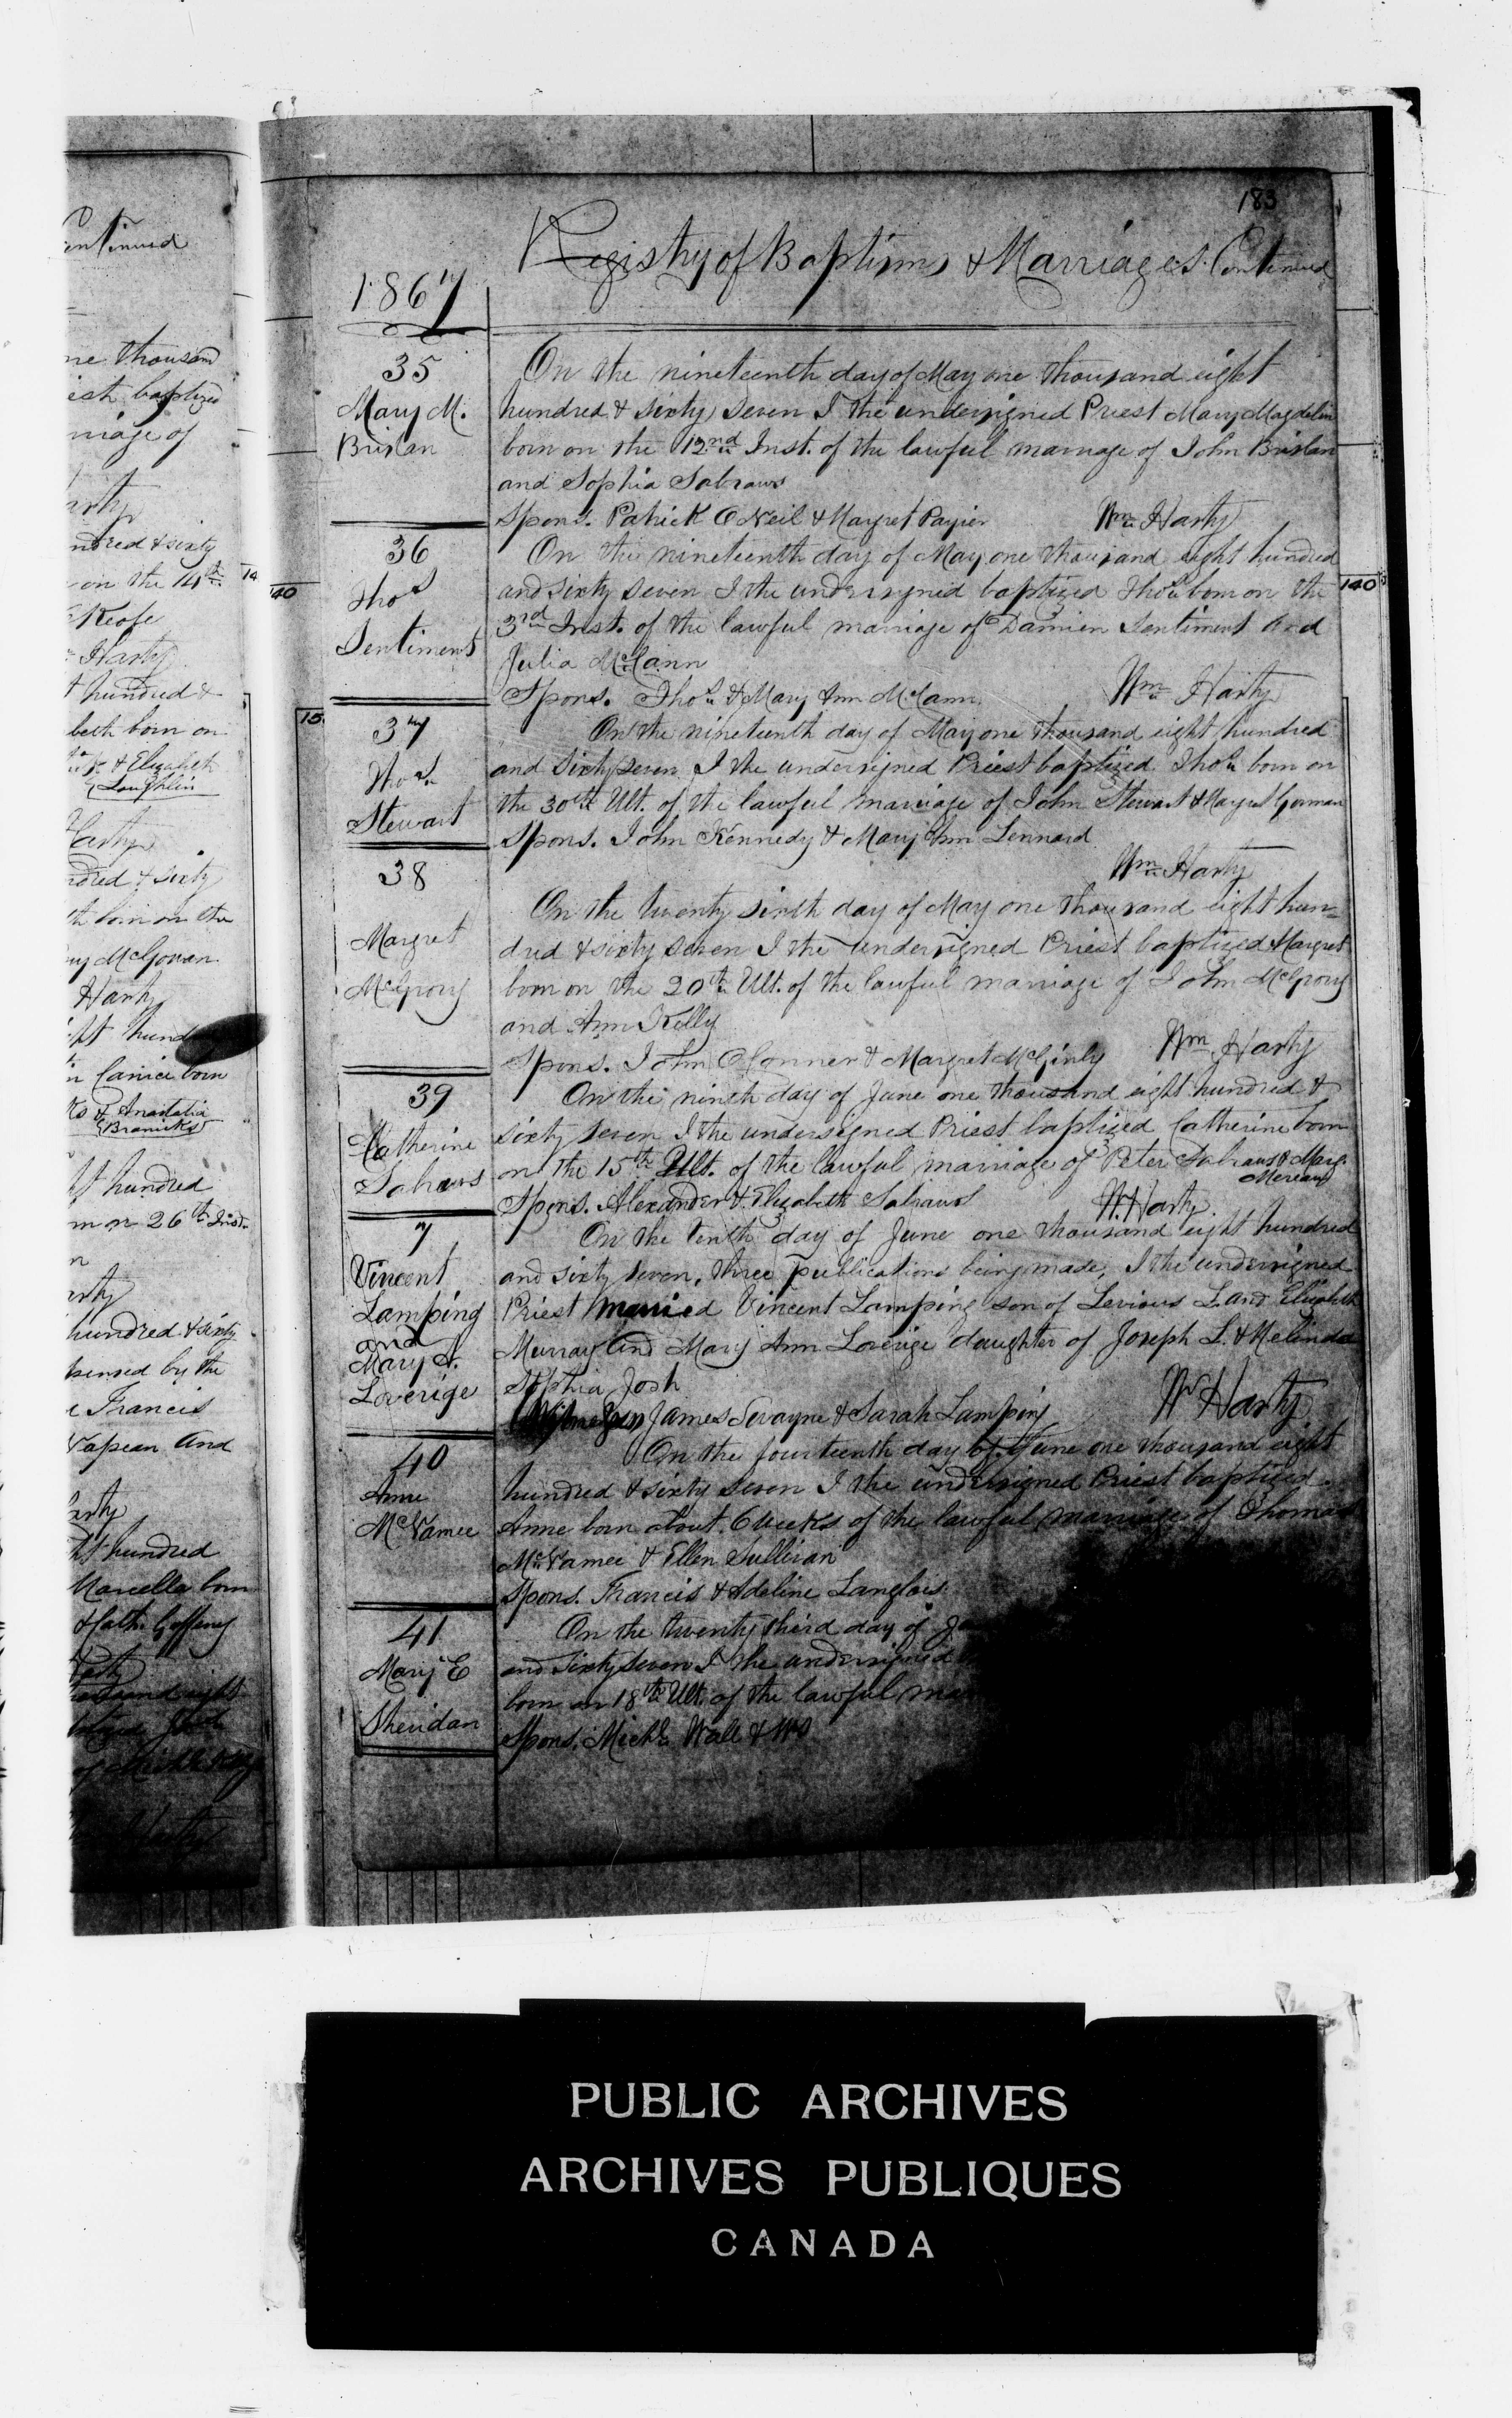 entinued
ne thousand
iest baptized
rriage of
arty
ndred & sixty
on the 14th
Keofe
Harty
t hundred &
beth born on
& Elizabeth
Loughlin
Harty
ndred & sixty
th born on the
ry McGovan
Harty
ght hund
n Canice born
& Anastatia
Branicks
ht hundred
rn on 26th Inst.
n
arty
hundred & sixty
pensed by the
e Francis
Vapean And
arty
ht hundred
Marcella born
& Cath. Goffeney
arty
183
Registry of Baptisms & Marriages. Continued
1867
35
Mary M.
Brislan
On the nineteenth day of May one thousand eight
hundred & sixty seven I the undersigned Priest Mary Magdelin
born on the 12nd Inst. of the lawful marriage of John Brislan
and Sophia Sabraws
Spons. Patrick O Neil & Margret Payier Wm Harty
36
Thos
Sentiment
On the nineteenth day of May one thousand eight hundred
and sixty seven I the undersigned baptized Thos born on the
3rd Inst. of the lawful marriage of Damien Sentiment And
Julia McCann
Spons. Thos & Mary Ann McCann Wm Harty
140
140
15
37
Thos
Stewart
On the nineteenth day of May one thousand eight hundred
and sixty seven I the undersigned Priest baptized Thos born on
the 30th Ult. of the lawful marriage of John Stewart & Margret Gorman
Spons. John Kennedy & Mary Ann Lennard
Wm Harty
38
Margret
McGrory
On the twenty sixth day of May one thousand eight hun=
dred & sixty seven I the undersigned Priest baptized Margret
born on the 20th Ult. of the lawful marriage of John McGrory
and Ann Kelly
Spons. John O Conner & Margret McGinly Wm Harty
39
Catherine
Sabraws
On the ninth day of June one thousand eight hundred &
sixty seven I the undersigned Priest baptized Catherine born
on the 15th Ult. of the lawful marriage of Peter Sabraws & Marg.
Mereau
Spons. Alexander & Elizabeth Sabraws W. Harty
7
Vincent
Lamping
and
Mary A.
Loverige
On the tenth day of June one thousand eight hundred
and sixty seven, three publications being made, I the undersigned
Priest married Vincent Lamping son of Levious L. and Elizabeth
Murray And Mary Ann Loverige daughter of Joseph L. & Melinda
Sophia Josh
Witnesses James Swayne & Sarah Lamping W Harty
40
Anne
McNamee
On the fourteenth day of June one thousand eight
hundred & sixty seven I the undersigned Priest baptized
Anne born about 6 weeks of the lawful marriage of Thomas
McNamee & Ellen Sullivan
Spons. Francis & Adeline Langlois
41
Mary E
Sheridan
On the twenty third day of
and sixty seven I the undersigned
born on 18th Ult. of the lawful mar
Spons. Michl Wall &
PUBLIC ARCHIVES
ARCHIVES PUBLIQUES
CANADA